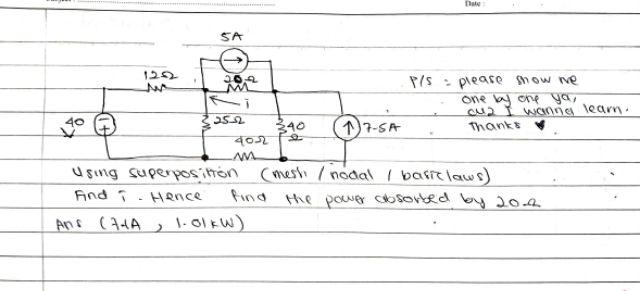 Date :
5A
12Ω 20Ω
P/S : please show me
one by one ya,
cuz I wanna learn.
Thanks ♥
i
40 V
25Ω
40 Ω
7.5A
40Ω
Using superposition (mesh / nodal / basic laws)
Find i. Hence find the power absorbed by 20Ω
Ans (7.1A , 1.01kW)